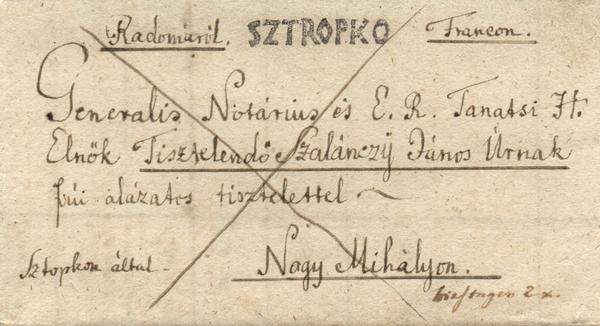 Radomáról. SZTROPKO Francon.
Generalis Nótárius és E. R. Tanatsi H.
Elnök Tisztelendő Szalánczÿ János Úrnak
fúi alázatos tisztelettel
Sztopkon által. Nagy Mihályon.
2 x.